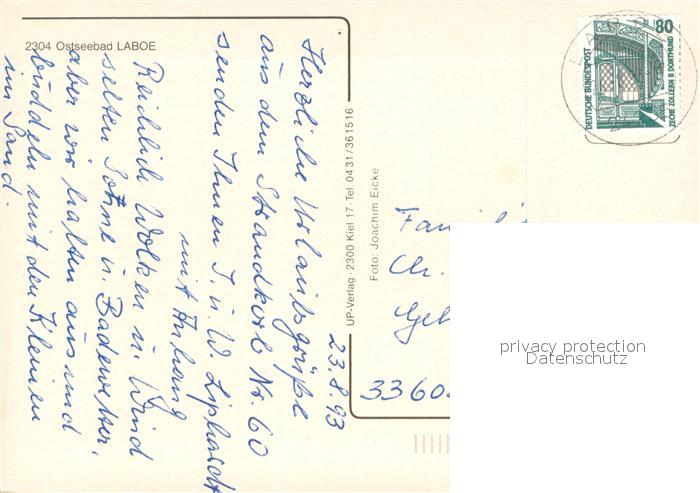 2304 Ostseebad LABOE
23.8.93
Herzliche Urlaubsgrüße
aus dem Strandkorb Nr. 60
senden Ihnen I. u. W. Liphardt
mit Anhang
Reichlich Wolken u. Wind
selten Sonne u. Badewetter,
aber wir halten aus und
buddeln mit den Kleinen
im Sand.
UP-Verlag · 2300 Kiel 17 · Tel. 0431/361516
Foto: Joachim Eicke
80
DEUTSCHE BUNDESPOST
ZECHE ZOLLERN II DORTMUND
Ch.
3360
privacy protection
Datenschutz